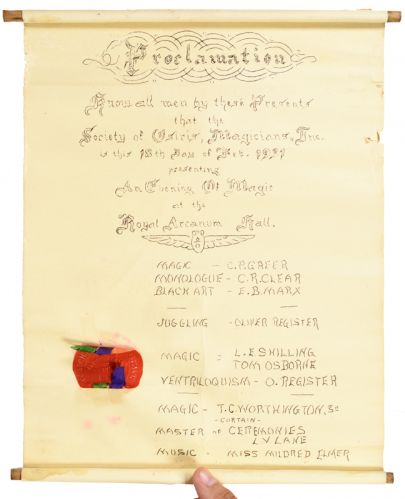 Proclamation
Know all men by these Presents
that the
Society of Osiris, Magicians, Inc.
is this 18th Day of Feb. 1921
presenting
An Evening Of Magic
at the
Royal Arcanum Hall.
MAGIC - C.P. GREER
MONOLOGUE - C.R. CLEAR
BLACK ART - E.B. MARX
JUGGLING - OLIVER REGISTER
MAGIC = L.E SHILLING
TOM OSBORNE
VENTRILOQUISM - O. REGISTER
MAGIC - T.C. WORTHINGTON, 3D
- CURTAIN -
MASTER OF CEREMONIES
L.V LANE
MUSIC - MISS MILDRED ELMER